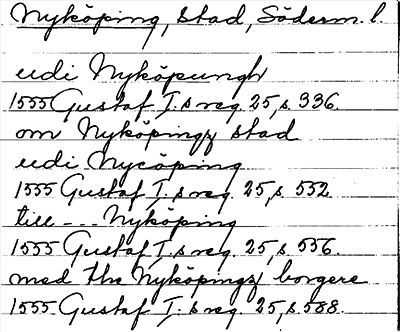 Nyköping, stad, Söderm. l.
udi Nyköpungh
1555 Gustaf I:s reg. 25, s. 336.
om Nyköpingz stad
udi Nycöping
1555 Gustaf I:s reg. 25, s. 552.
till --- Nyköping
1555 Gustaf I:s reg. 25, s. 556.
med the Nyköpingz borgere
1555 Gustaf I:s reg. 25, s. 588.